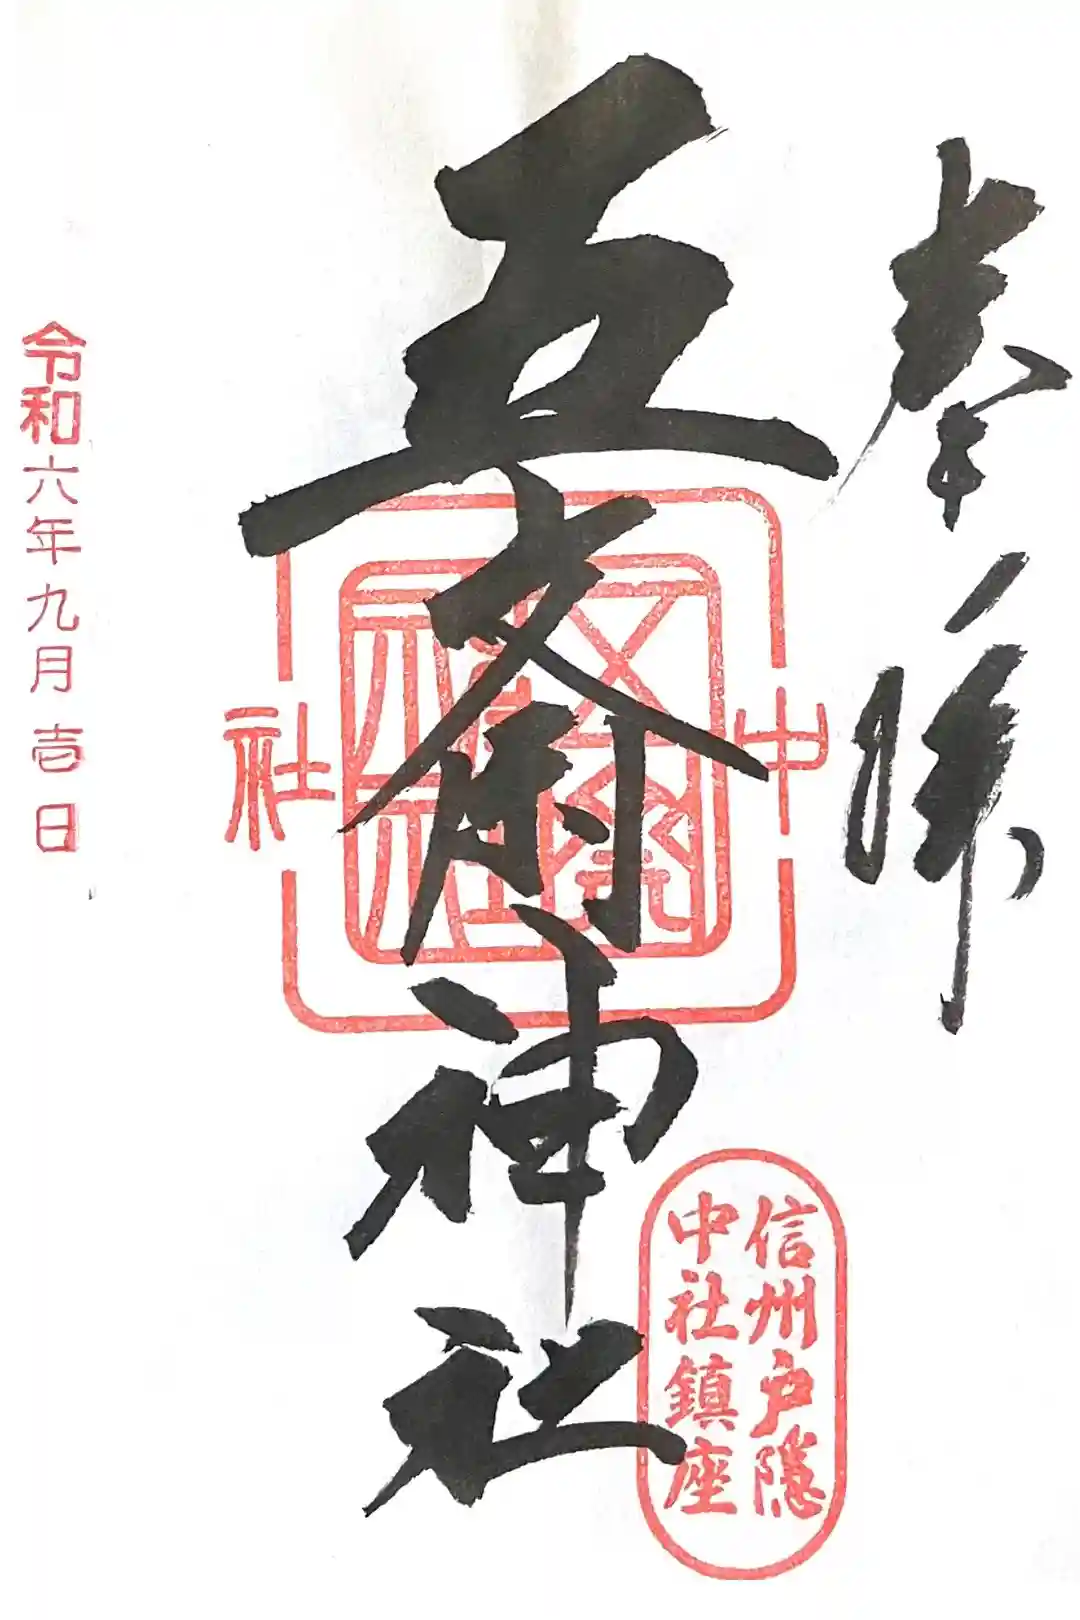 奉拝
五斎神社
中社
信州戸隠
中社鎮座
令和六年九月壱日